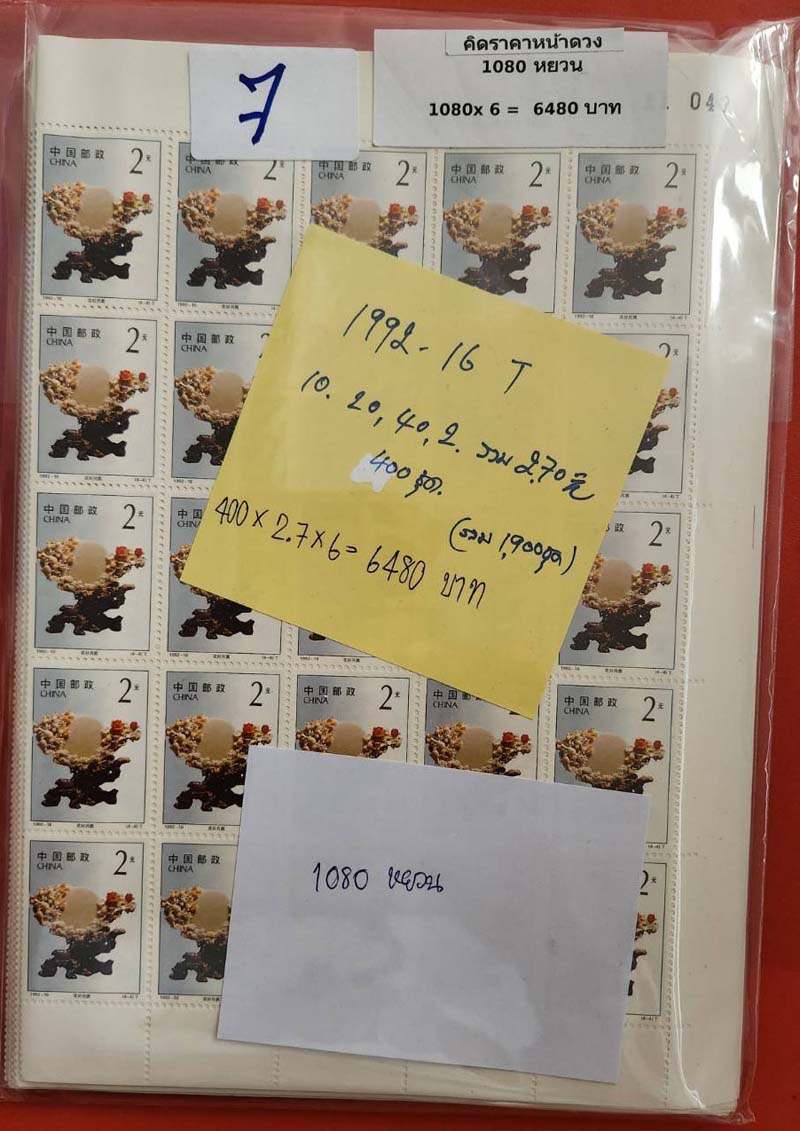 คิดราคาหน้าดวง
1080 หยวน
1080x 6 = 6480 บาท
7
04
1992-16 T
10. 20, 40, 2. รวม 2.70 
400 ชุด.
(รวม 1,900ชุด)
400 x 2.7 x 6 = 6480 บาท
1080 หยวน
中国邮政
CHINA
2元
1992-16
花好月圆
(4-4)T